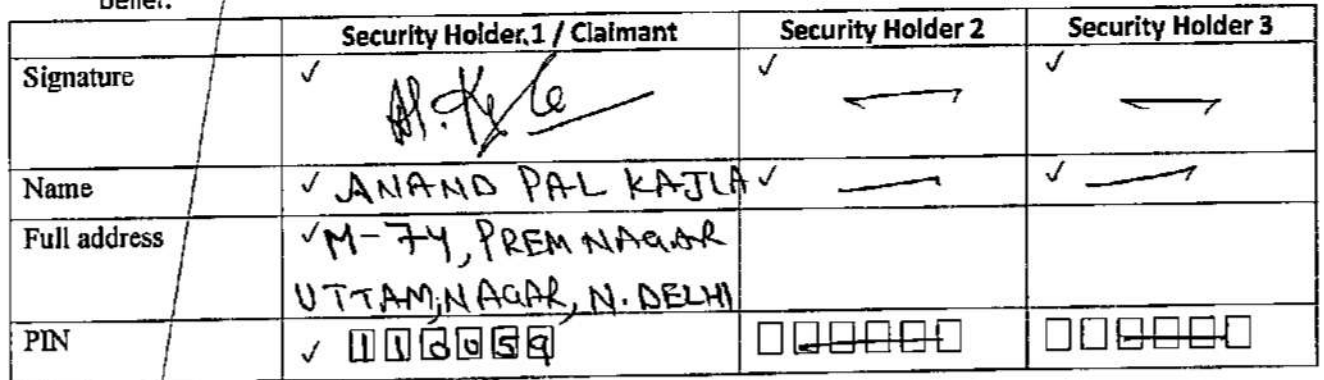 belief.
Security Holder.1 / Claimant Security Holder 2 Security Holder 3
Signature ✓ ✓ ✓
Name ✓ ANAND PAL KAJLA ✓ ✓
Full address ✓ M-74, PREM NAGAR
UTTAM, NAGAR, N. DELHI
PIN ✓ 110059